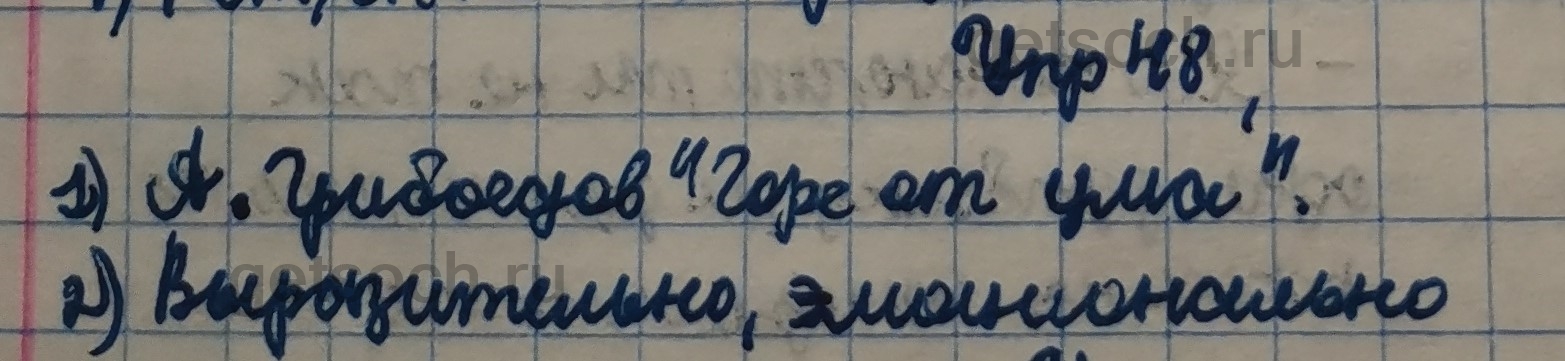 Упр 48,
1) А. Грибоедов "Горе от ума".
2) Выразительно, эмоционально
getsoch.ru
getsoch.ru